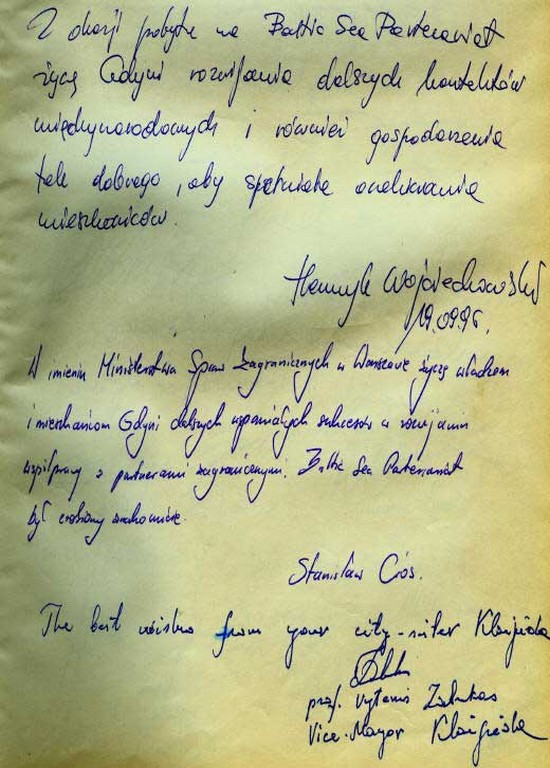 Z okazji pobytu na Baltic Sea Partenariat
życzę Gdyni rozwijania dalszych kontaktów
międzynarodowych i również gospodarzenia
tak dobrego, aby spełniało oczekiwania
mieszkańców.
Henryk Wojciechowski
19.09.96.
W imieniu Ministerstwa Spraw Zagranicznych w Warszawie życzę władzom
i mieszkańcom Gdyni dalszych wspaniałych sukcesów w rozwijaniu
współpracy z partnerami zagranicznymi. Baltic Sea Partenariat
był zrobiony znakomicie.
Stanisław Cios.
The best wishes from your city-sister Klaipėda
prof. Vytenis
Vice-Mayor Klaipėda